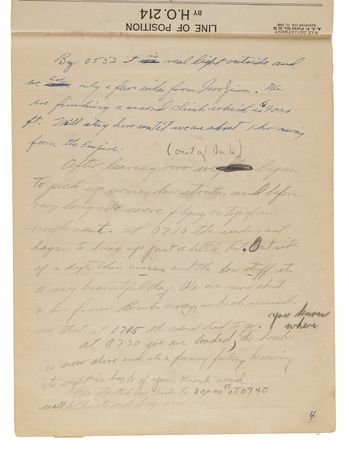 LINE OF POSITION
BY H.O. 214
WAR DEPARTMENT
By 0552 it real light outside and
we only a few miles from Iwo Jima. We
are finishing a second climb which is 9000
ft. Will stay here until we are about 1 hr away
from the Empire.
(out of Ink)
After leaving Iwo we began
to pick up some low stratus and before
very long we were flying on top of an
undercast. at 0710 the undercast
began to break up just a little bit. Outside
of a high thin cirrus and the low stuff it's
a very beautiful day. We are now about
2 hrs from
me that at 1365 the
you know
where
at 0730 we are loaded, the bomb
is now alive and it's a funny feeling knowing
it's right in back of you. Knock wood.
We started our climb to 30,000 ft at 0740
4